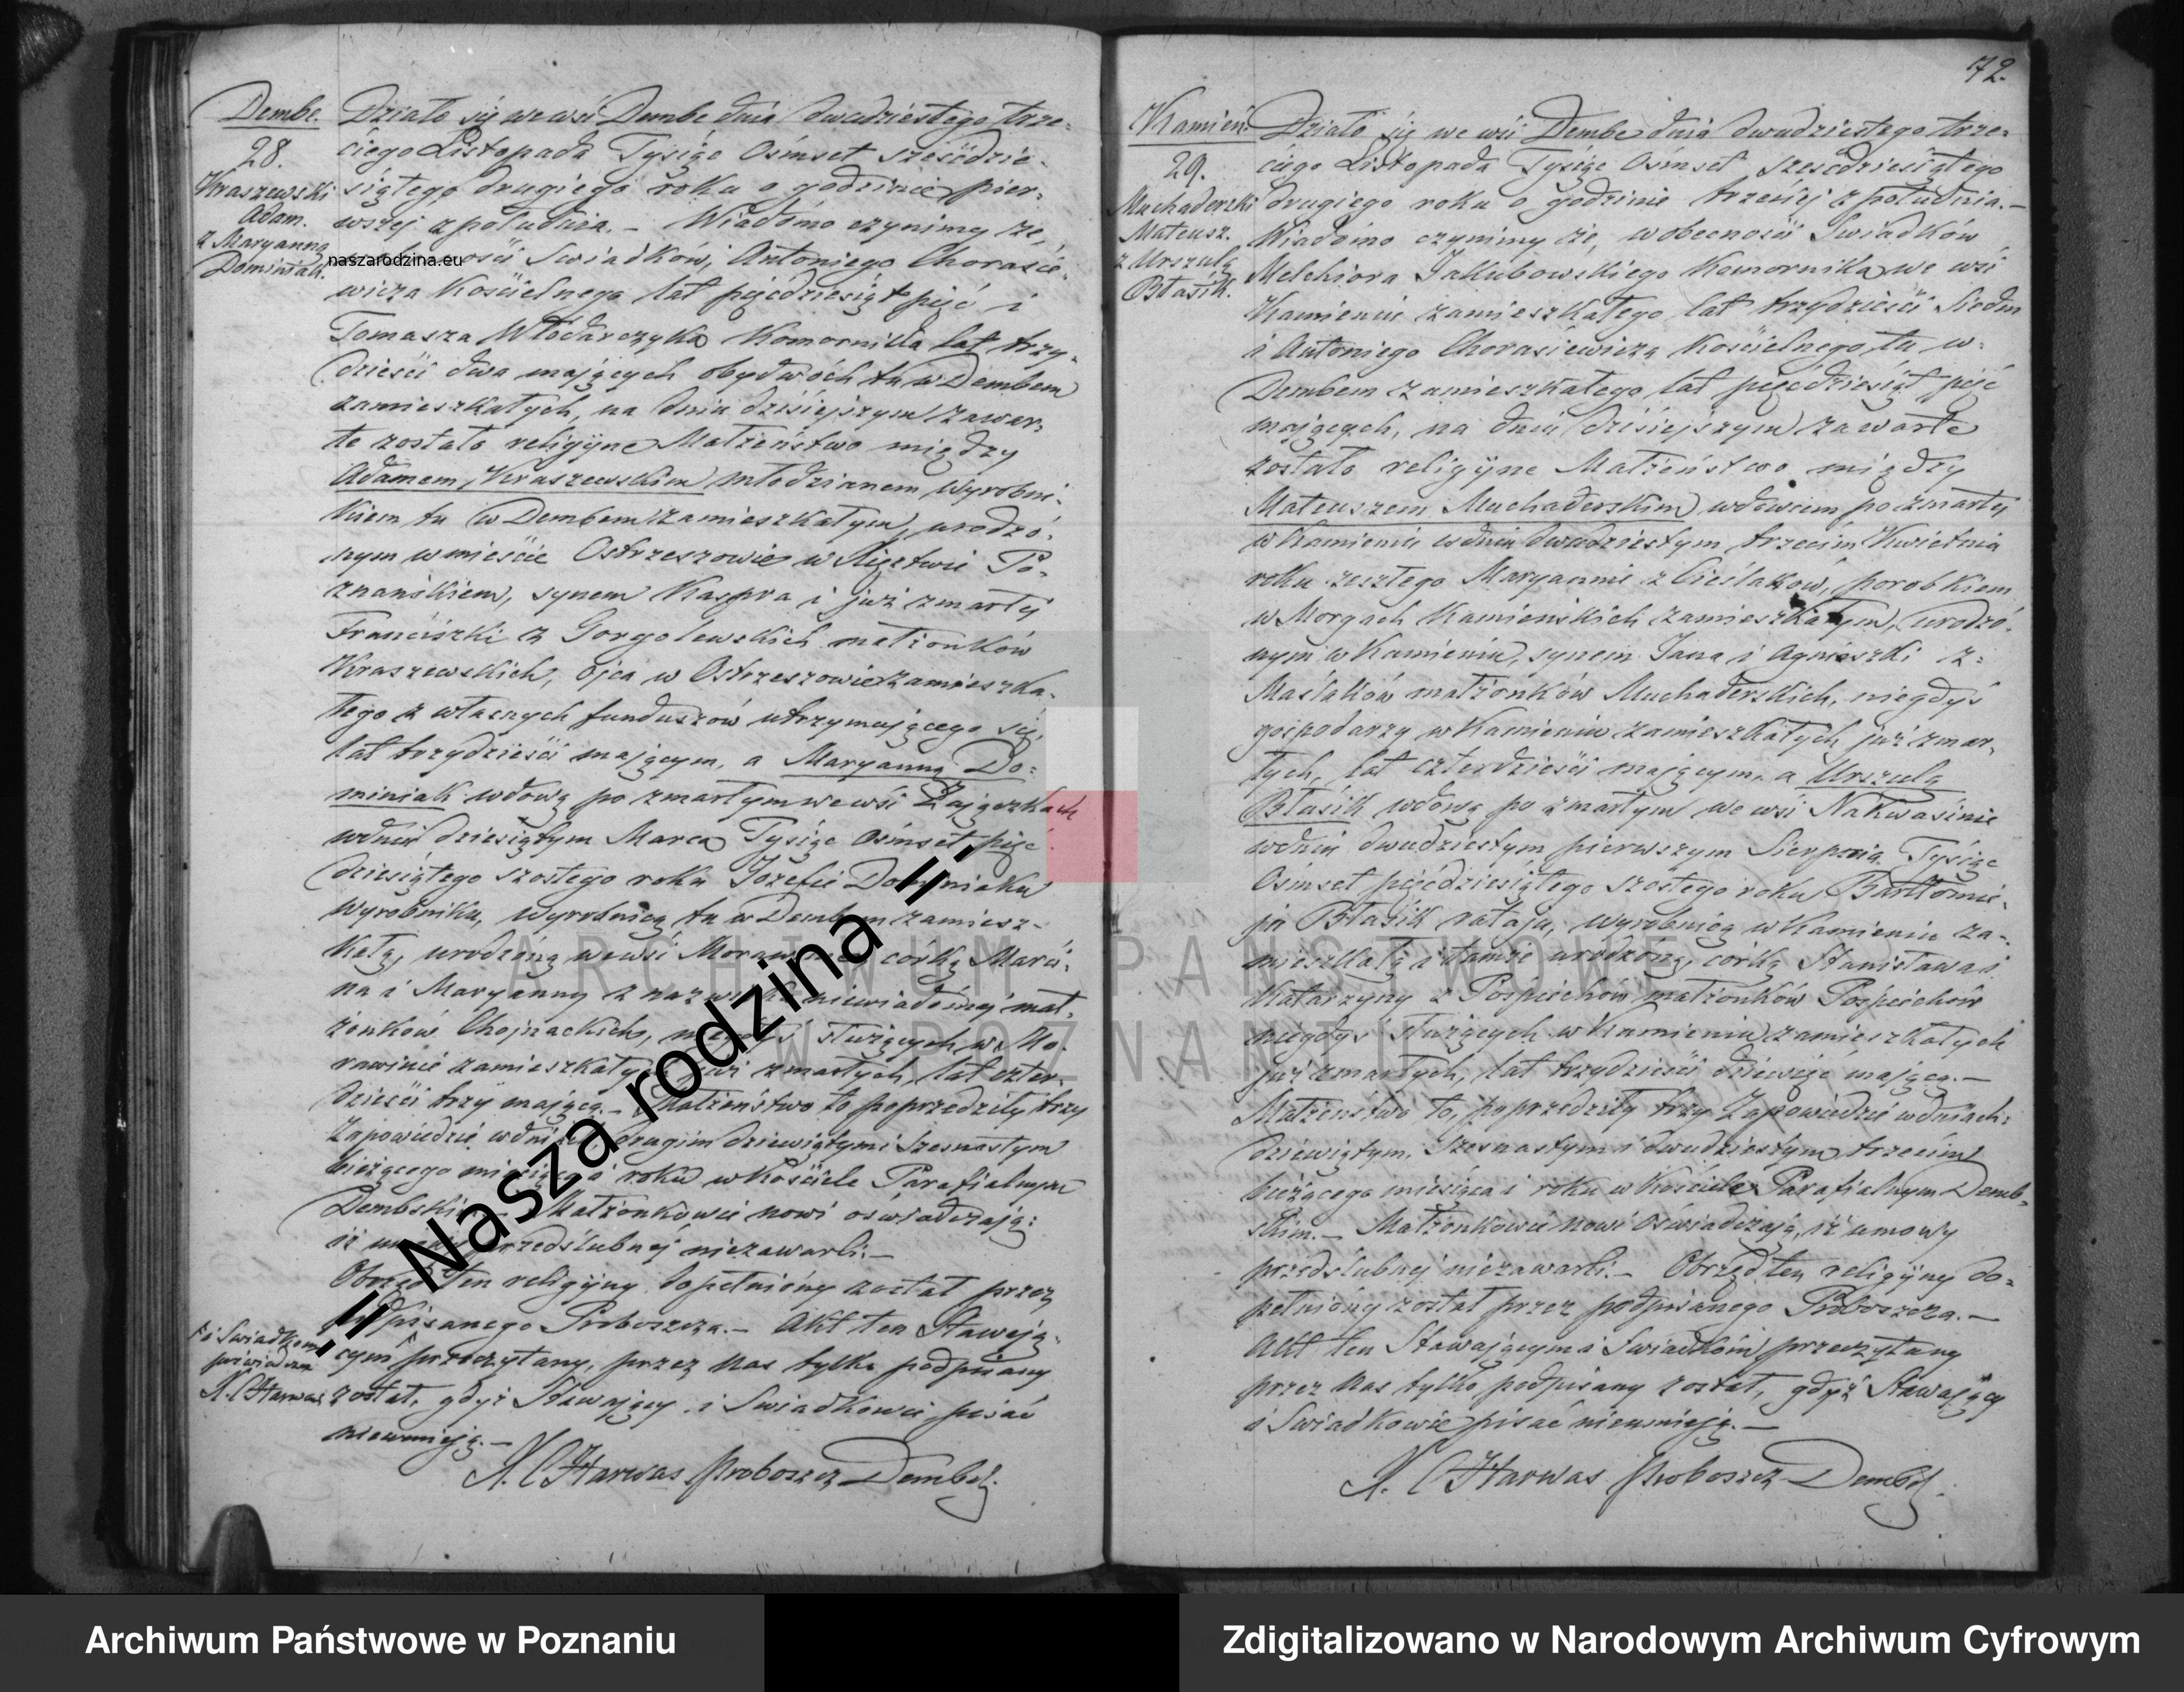 Dembe.
28.
Kraszewski
Adam.
z Maryanną
Dominiak.
naszarodzina.eu
Działo się we wsi Dembe dnia dwudziestego trze-
ciego Listopada Tysiąc Osmset sześćdzie-
siątego drugiego roku o godzinie pier-
wszej z południa. – Wiadomo czynimy że,
Świadków, Antoniego Chorasie-
wicza Kościelnego lat pięćdziesiąt pięć i
Tomasza Włodarczyka Komornika lat trzy-
dzieści dwa mających obydwóch tu w Dembem
zamieszkałych, na dniu dzisiejszym zawar-
te zostało religijne Małżeństwo między
Adamem Kraszewskim młodzianem wyrobni-
kiem tu w Dembem zamieszkałym, urodzo-
nym w mieście Ostrzeszowie w Xięztwie Po-
znańskiem, synem Kaspra i już zmarłej
Franciszki z Gorgolewskich małżonków
Kraszewskich, ojca w Ostrzeszowie zamieszka-
łego z własnych funduszów utrzymującego się,
lat trzydzieści mającym, a Maryanną Do-
miniak wdową po zmarłym we wsi Zajączkach
w dniu dziesiątym Marca Tysiąc Osmset pięć-
dziesiątego szóstego roku Józefie Dominiaku
wyrobniku, wyrobnicą tu w Dembem zamiesz-
kałą, urodzoną we wsi córką Marci-
na i Maryanny z nazwiska niewiadomej mał-
żonków Chojnackich, niegdyś służących w Mo-
rawinie zamieszkałych już zmarłych, lat czter-
dzieści trzy mającą. – Małżeństwo to poprzedziły trzy
Zapowiedzie w dniach drugim dziewiątym i szesnastym
bieżącego miesiąca i roku w Kościele Parafialnym
Dembskim. – Małżonkowie nowi oświadczają:
iż umowy przedślubnej niezawarli. –
Obrzęd ten religijny dopełniony został przez
podpisanego Proboszcza. – Akt ten Stawają-
cym przeczytany, przez Nas tylko podpisany
został, gdyż Stawający i Świadkowie pisać
nieumieją. –
i Świadkom
poświadcza
X. C Harwas
X. C Harwas Proboszcz Dembs.
72.
Kamień
29.
Muchaderski
Mateusz.
z Urszulą
Błasik.
Działo się we wsi Dembe dnia dwudziestego trze-
ciego Listopada Tysiąc Osmset sześćdziesiątego
drugiego roku o godzinie trzeciej z południa. –
Wiadomo czynimy że, w obecności Świadków
Melchiora Jakubowskiego Komornika we wsi
Kamieniu zamieszkałego lat trzydzieści siedm
i Antoniego Chorasiewicza Kościelnego tu w-
Dembem zamieszkałego lat pięćdziesiąt pięć
mających, na dniu dzisiejszym zawarte
zostało religijne Małżeństwo między
Mateuszem Muchaderskim wdowcem po zmarłej
w Kamieniu w dniu dwudziestym trzecim Kwietnia
roku zeszłego Maryannie z Cieślaków, parobkiem
w Morgach Kamieńskich zamieszkałym, urodzo-
nym w Kamieniu, synem Jana i Agnieszki z-
Maślaków małżonków Muchaderskich, niegdyś
gospodarzy w Kamieniu zamieszkałych już zmar-
łych, lat czterdzieści mającym, a Urszulą
Błasik wdową po zmarłym we wsi Nakwasinie
w dniu dwudziestym pierwszym Sierpnia Tysiąc
Osmset pięćdziesiątego szóstego roku Bartłomie-
ju Błasik rataju, wyrobnicą w Kamieniu za-
mieszkałą i tamże urodzoną, córką Stanisława i
Katarzyny z Pośpiechów małżonków Pośpiechów
niegdyś służących w Kamieniu zamieszkałych
już zmarłych, lat trzydzieści dziewięć mającą. –
Małżeństwo to, poprzedziły trzy Zapowiedzie w dniach:
dziewiątym, szesnastym i dwudziestym trzecim
bieżącego miesiąca i roku w Kościele Parafialnym Demb-
skim. – Małżonkowie nowi oświadczają, iż umowy
przedślubnej niezawarli. – Obrzęd ten religijny do-
pełniony został przez podpisanego Proboszcza. –
Akt ten Stawającym i Świadkom przeczytany
przez Nas tylko podpisany został, gdyż Stawający
i Świadkowie pisać nieumieją. –
X. C Harwas Proboszcz Dembs.
ARCHIWUM PAŃSTWOWE
W POZNANIU
-= Nasza rodzina =-
Archiwum Państwowe w Poznaniu
Zdigitalizowano w Narodowym Archiwum Cyfrowym